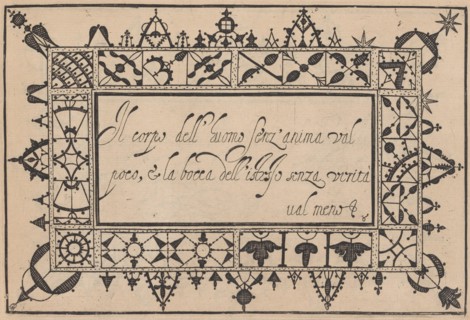 Il corpo dell' huomo senz' anima val
poco, & la bocca dell' istesso senza verità
ual meno